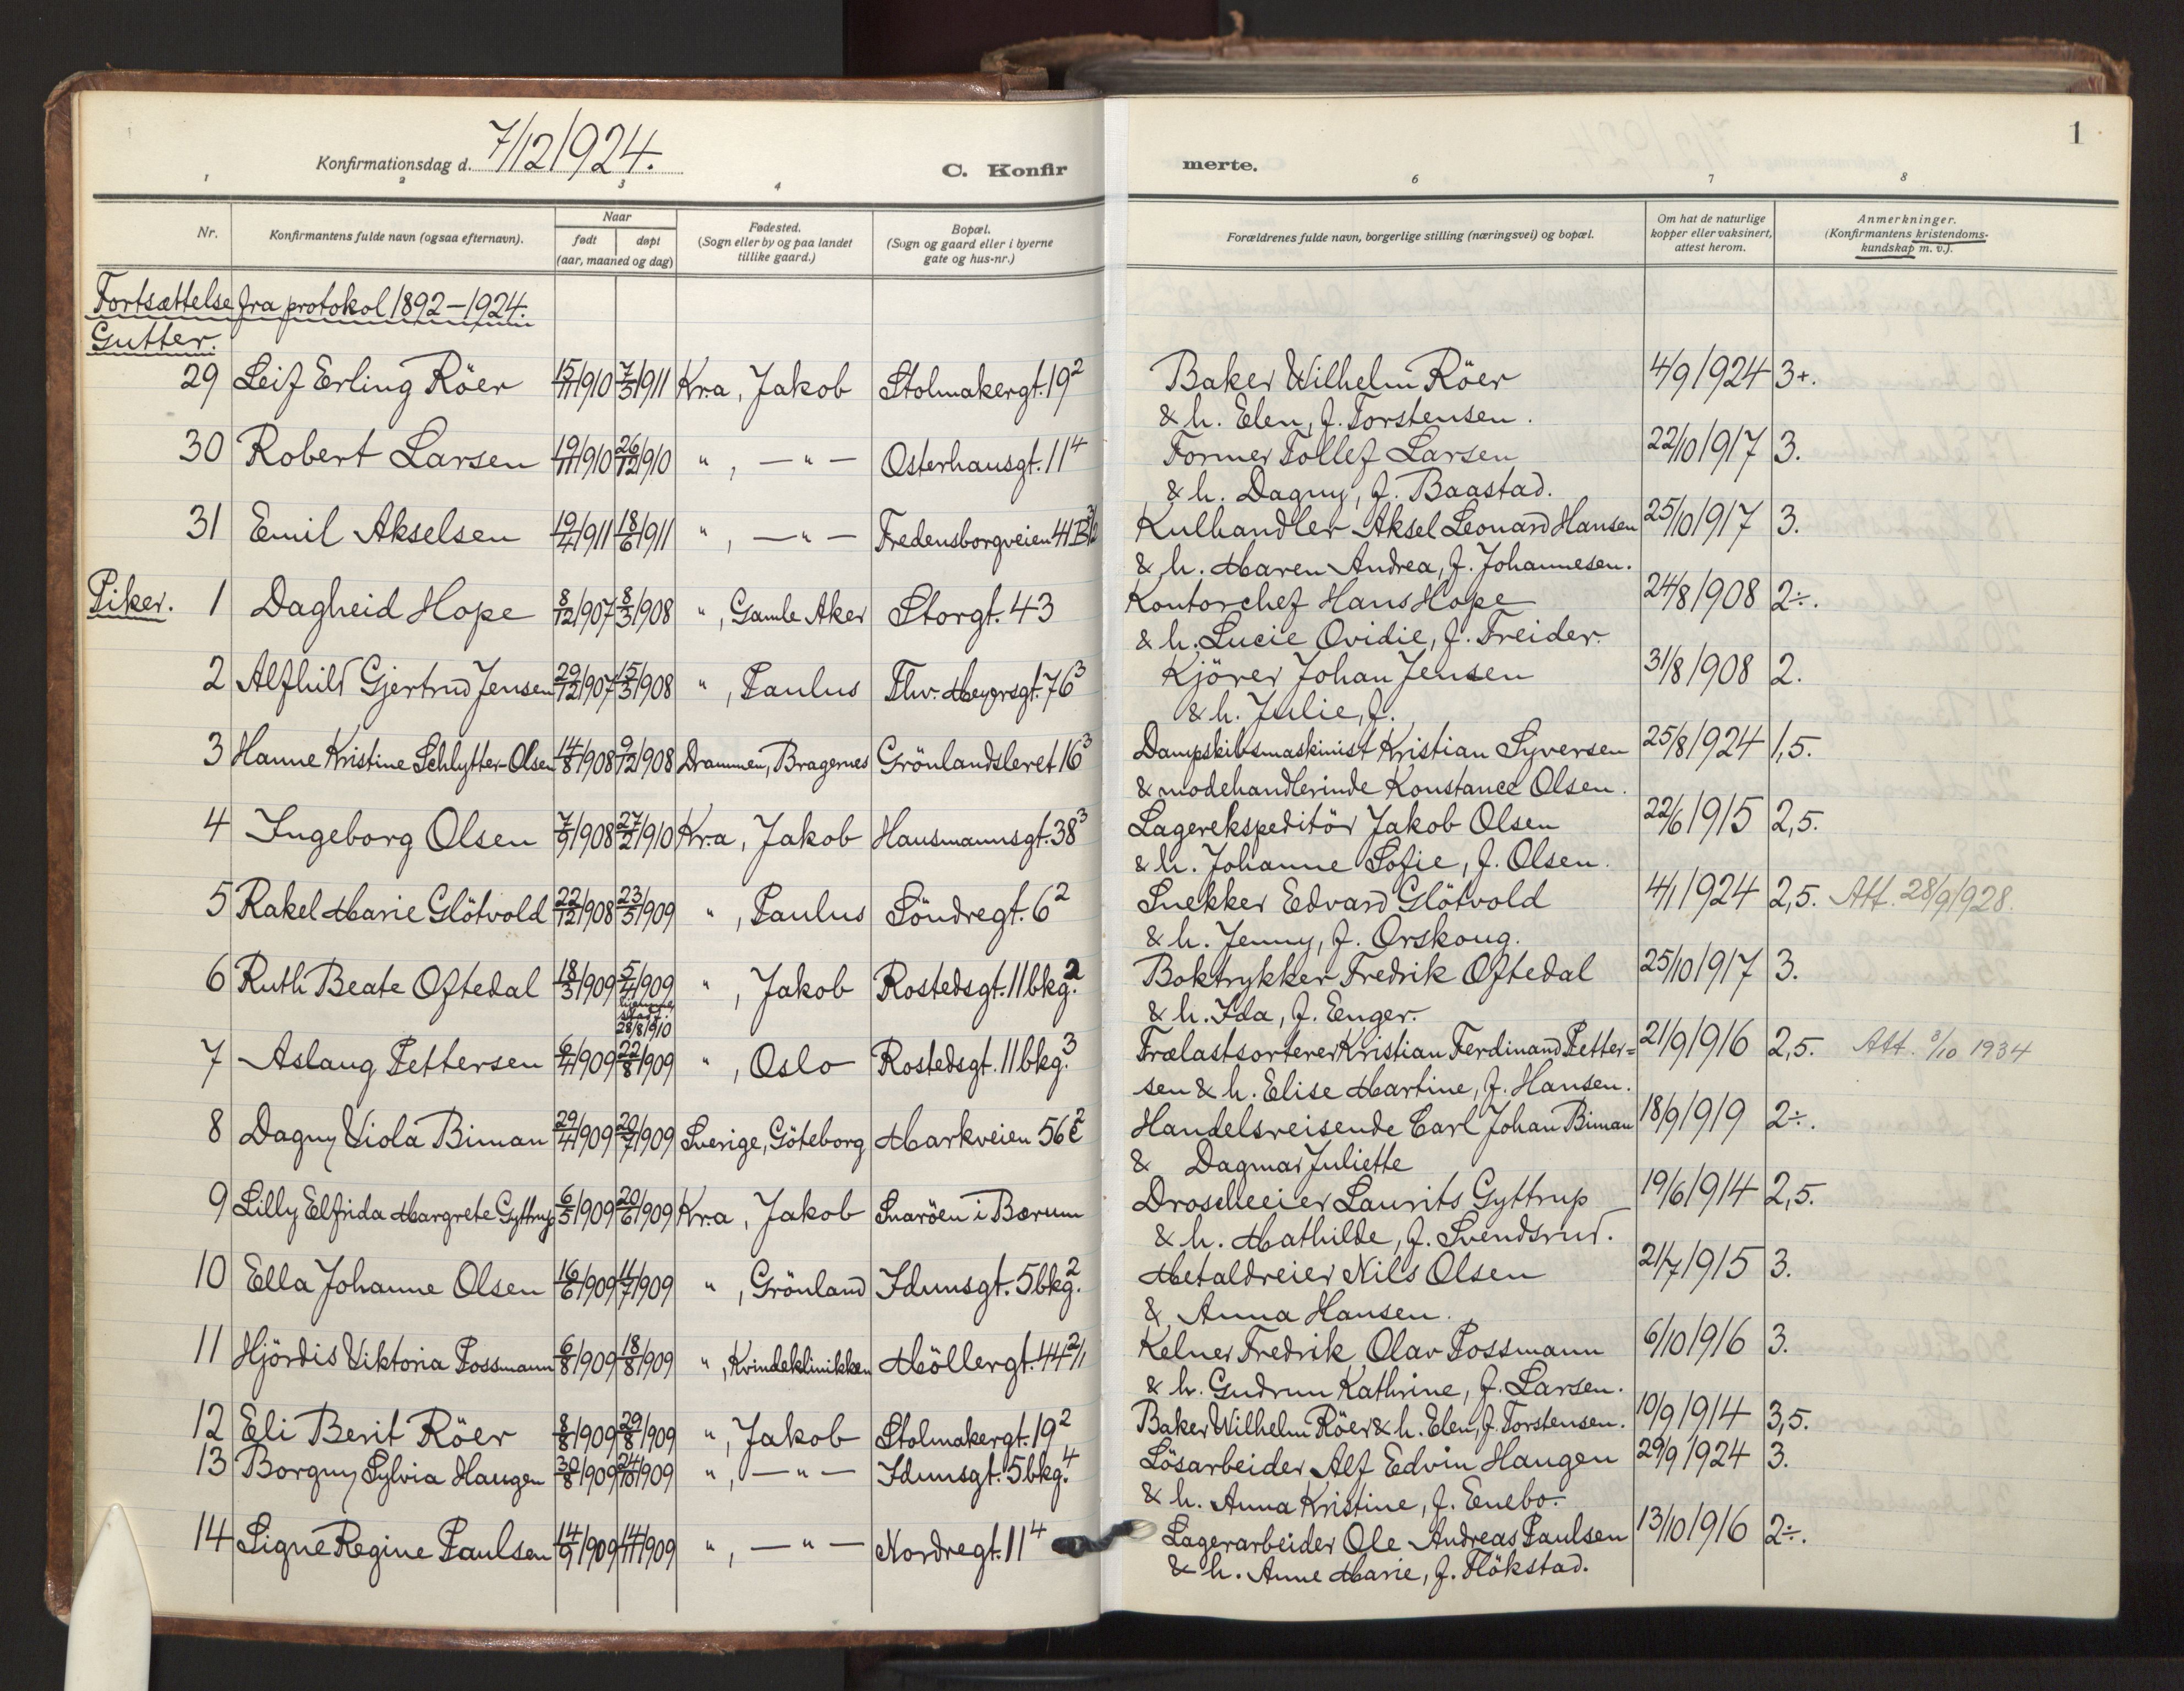 Konfirmationsdag d. 7/12 1924. C. Konfirmerte. 1
1 2 3 4 6 7 8
Nr. Konfirmantens fulde navn (ogsaa efternavn). Naar født døpt (aar, maaned og dag) Fødested. (Sogn eller by og paa landet tillike gaard.) Bopæl. (Sogn og gaard eller i byerne gate og hus-nr.) Forældrenes fulde navn, borgerlige stilling (næringsvei) og bopæl. Om hat de naturlige kopper eller vaksinert, attest herom. Anmerkninger. (Konfirmantens kristendoms-kundskap m. v.).
Fortsættelse fra protokol 1892–1924.
Gutter.
29 Leif Erling Röer 15/11 1910 7/3 1911 Kr.a, Jakob Stolmakergt. 19² Baker Wilhelm Röer 4/9 1924 3+.
& h. Elen, f. Torstensen.
30 Robert Larsen 19/11 1910 26/12 1910 " , — " — Osterhausgt. 11⁴ Former Tollef Larsen 22/10 1917 3.
& h. Dagny, f. Baastad.
31 Emil Akselsen 19/4 1911 18/6 1911 " , — " — Fredensborgveien 41 B Kulhandler Aksel Leonard Hansen 25/10 1917 3.
& h. Maren Andrea, f. Johannesen.
Piker. 1 Dagheid Hope 8/12 1907 8/3 1908 " , Gamle Aker Storgt. 43 Kontorchef Hans Hope 24/8 1908 2÷.
& h. Lucie Ovidie, f. Freider.
2 Alfhild Gjertrud Jensen 29/12 1907 15/3 1908 " , Paulus Thv. Meyersgt. 76³ Kjörer Johan Jensen 31/8 1908 2.
& h. Julie, f.
3 Hanne Kristine Schlytter-Olsen 14/8 1908 9/12 1908 Drammen, Bragernes Grönlandsleret 16³ Dampskibsmaskinist Kristian Syversen 25/8 1924 1,5.
& modehandlerinde Konstance Olsen.
4 Ingeborg Olsen 7/9 1908 27/2 1910 Kr.a, Jakob Hausmannsgt. 38³ Lagerekspeditör Jakob Olsen 22/6 1915 2,5.
& h. Johanne Sofie, f. Olsen.
5 Rakel Marie Glötvold 22/12 1908 23/5 1909 " , Paulus Söndregt. 6² Snekker Edvard Glötvold 4/1 1924 2,5. Att. 28/9 1928.
& h. Jenny, f. Orskoug.
6 Ruth Beate Oftedal 18/3 1909 5/4 1909 " , Jakob Rostedsgt. 11 bkg.² Boktrykker Fredrik Oftedal 25/10 1917 3.
28/8 1910 & h. Ida, f. Enger.
7 Aslaug Pettersen 6/4 1909 22/8 1909 " , Oslo Rostedsgt. 11 bkg.³ Trælastsorterer Kristian Ferdinand Petter= 21/9 1916 2,5. Att. 3/10 1934
sen & h. Elise Martine, f. Hansen.
8 Dagny Viola Biman 29/4 1909 20/7 1909 Sverige, Göteborg Markveien 56 c² Handelsreisende Carl Johan Biman 18/9 1919 2÷.
& Dagmar Juliette
9 Lilly Elfrida Margrete Gyttrup 6/5 1909 20/6 1909 Kr.a, Jakob Snaröen i Bærum Droscheeier Laurits Gyttrup 19/6 1914 2,5.
& h. Mathilde, f. Svendsrud.
10 Ella Johanne Olsen 16/6 1909 11/7 1909 " , Grönland Idunsgt. 5 bkg.² Metaldreier Nils Olsen 21/7 1915 3.
& Anna Hansen.
11 Hjördis Viktoria Possmann 6/8 1909 18/8 1909 " , Kvindeklinikken Möllergt. 44 2/1 Kelner Fredrik Olav Possmann 6/10 1916 3.
& h. Gudrun Kathrine, f. Larsen.
12 Eli Berit Röer 8/8 1909 29/8 1909 " , Jakob Stolmakergt. 19² Baker Wilhelm Röer & h. Elen, f. Torstensen. 10/9 1914 3,5.
13 Borgny Sylvia Haugen 30/8 1909 24/10 1909 " , — " — Idunsgt. 5 bkg.⁴ Lösarbeider Alf Edvin Haugen 29/9 1924 3.
& h. Anna Kristine, f. Enebo.
14 Signe Regine Paulsen 14/9 1909 14/11 1909 " , — " — Nordregt. 11⁴ Lagerarbeider Ole Andreas Paulsen 13/10 1916 2÷.
& h. Anne Marie, f. Flökstad.